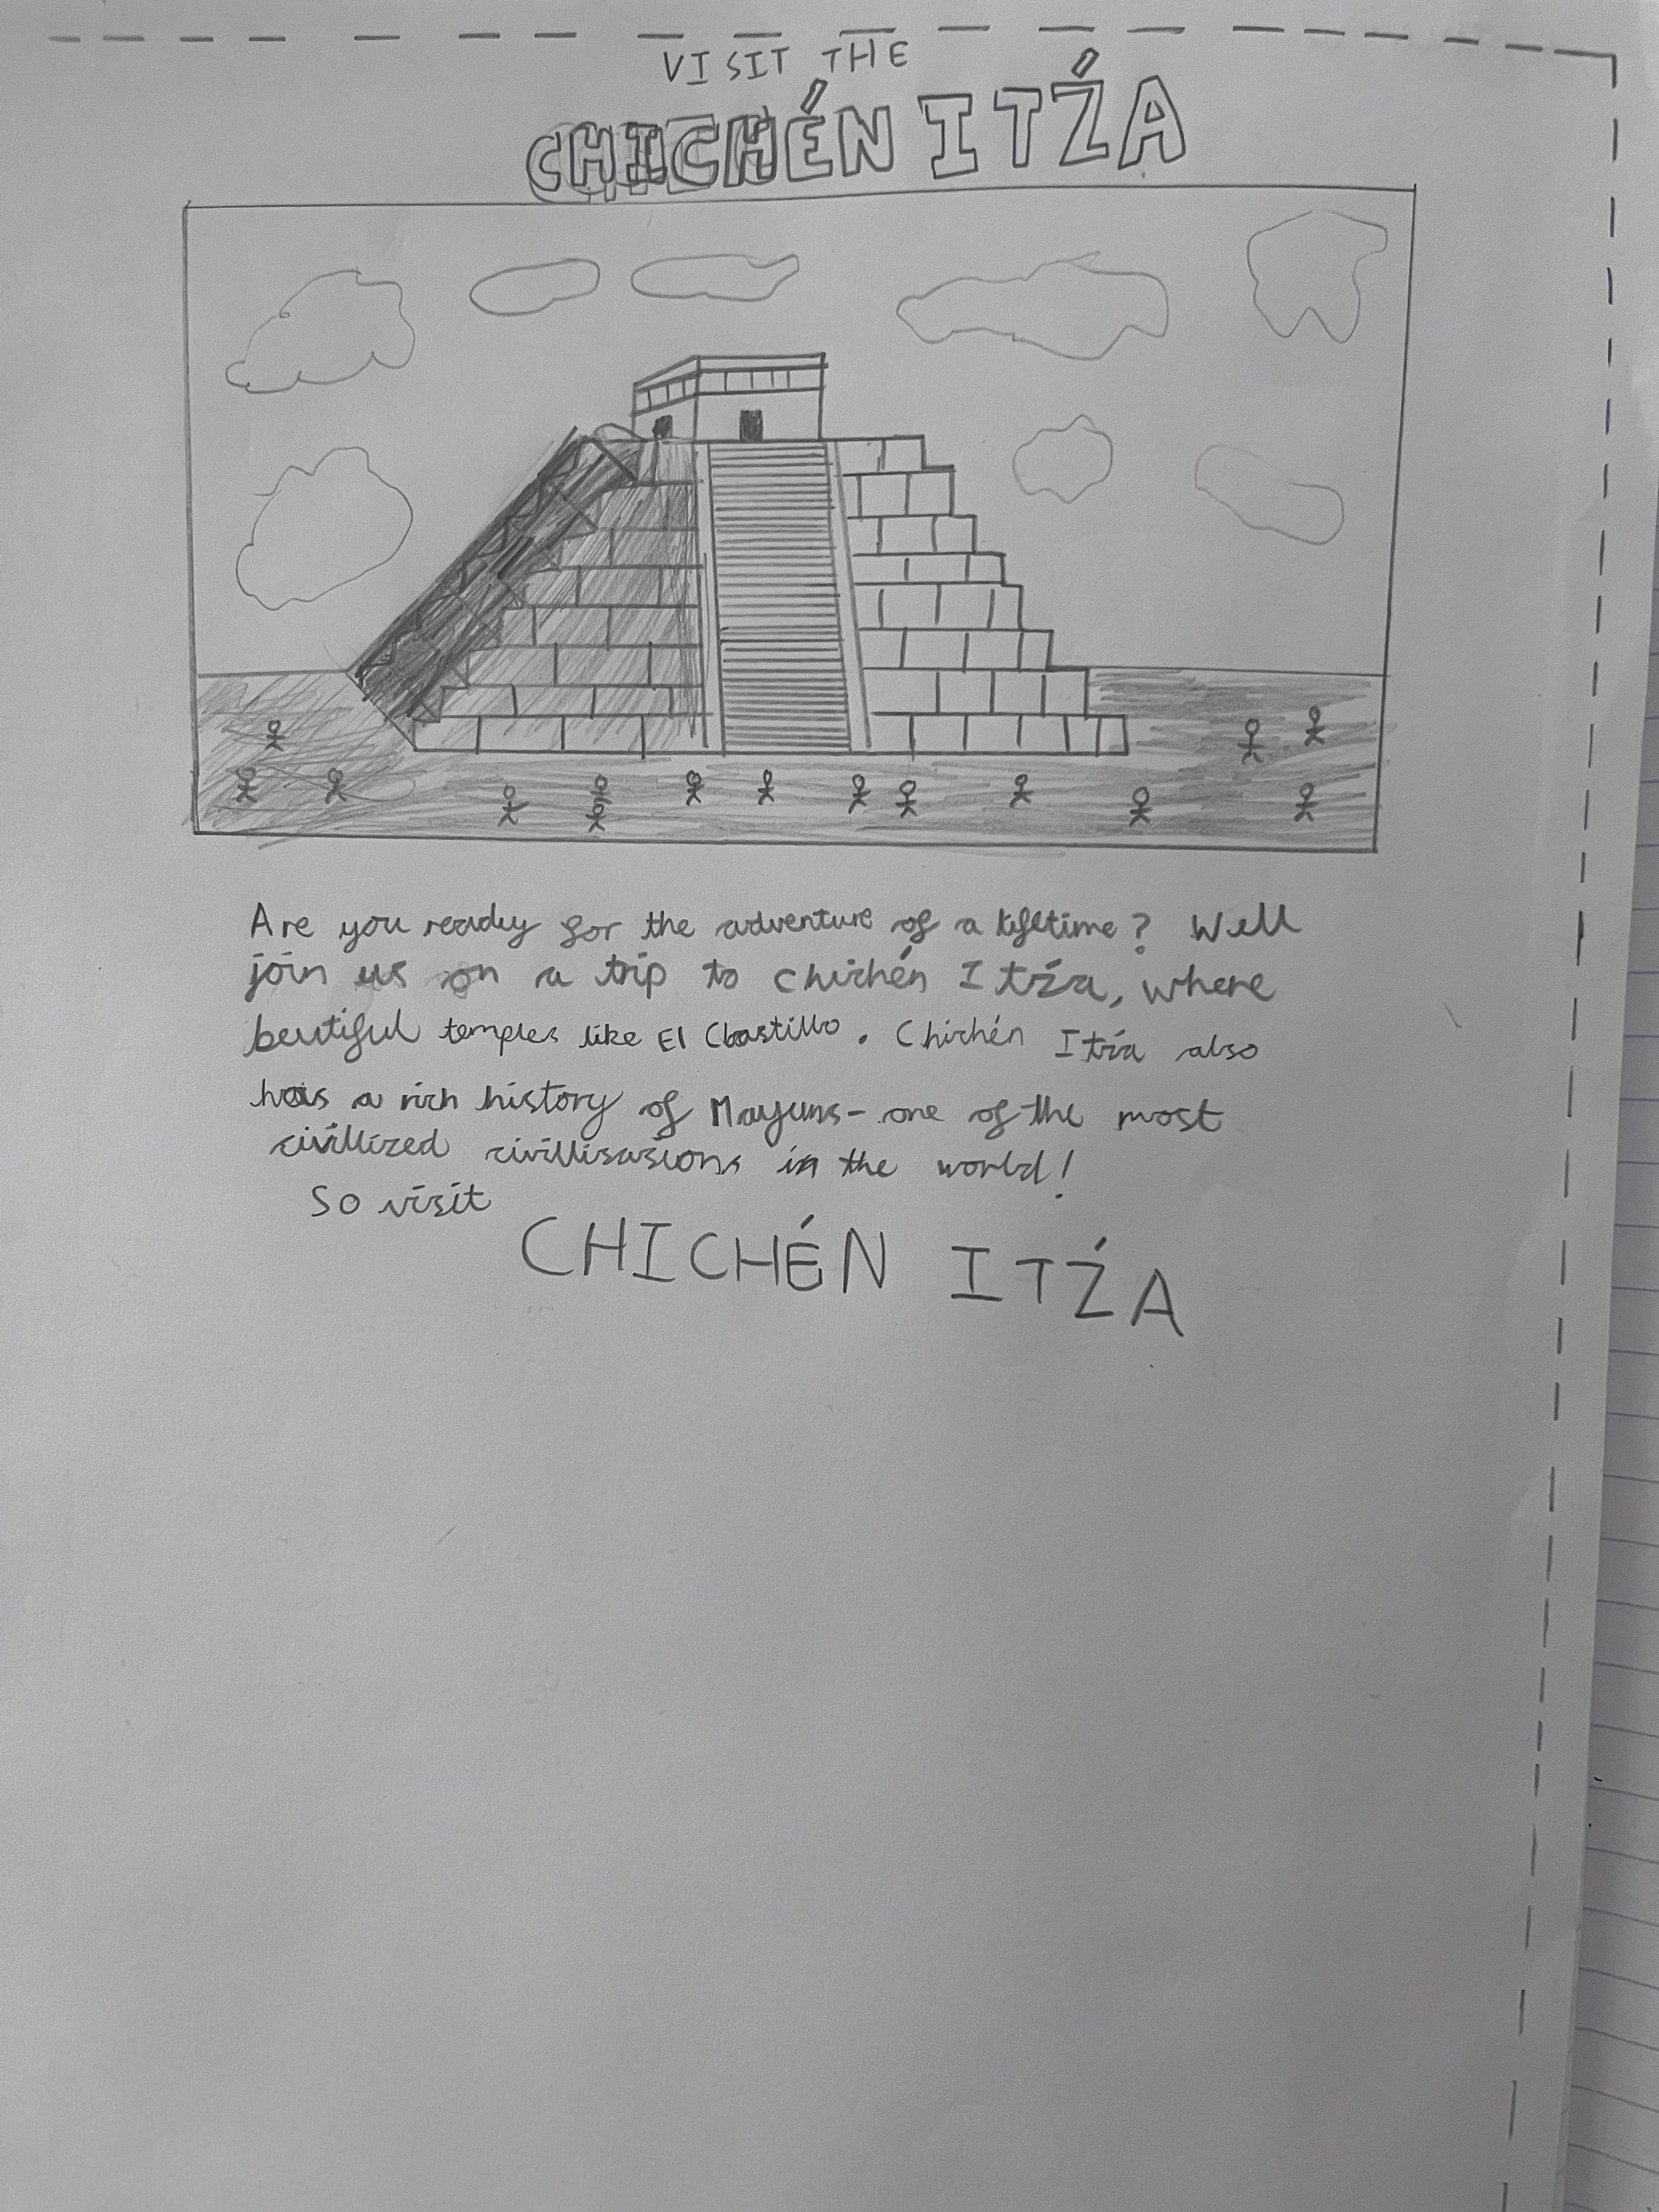 VISIT THE
CHICHÉN ITŹA
Are you ready for the adventure of a lifetime? Well
join us on a trip to chichén Itźa, where
beutiful temples like El Castillo. Chichén Itźa also
has a rich history of Mayans- one of the most
civillized civillisasions in the world!
So visit
CHICHÉN ITŹA